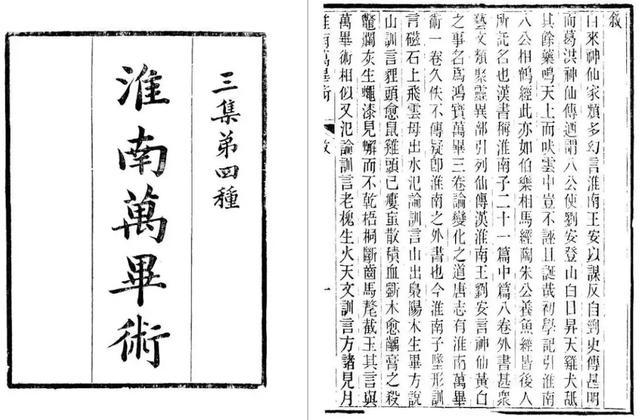 三集第四種
淮南萬畢術
敘
自來神仙家類多幻言淮南王安以謀反自剄史傳甚明
而葛洪神仙傳迺謂八公使劉安登山白日昇天雞犬舐
其餘藥鳴天上而吠雲中豈不誣且誕哉初學記引淮南
八公相鶴經此亦如伯樂相馬經陶朱公養魚經皆後人
所託名也漢書稱淮南子二十一篇中篇八卷外書甚衆
藝文類聚靈異部引列仙傳漢淮南王劉安言神仙黃白
之事名爲鴻寶萬畢三卷論變化之道唐志有淮南萬畢
術一卷久佚不傳疑卽淮南之外書也今淮南子墬形訓
言磁石上飛雲母出水氾論訓言山出梟陽木生畢方說
山訓言貍頭愈鼠雞頭已瘻䖟散積血斷木愈齲膏之殺
鼈爛灰生蠅漆見蟹而不乾梧桐斷齒馬氂截玉其言與
萬畢術相似又氾論訓言老槐生火天文訓言方諸見月
淮南萬畢術 敘 一